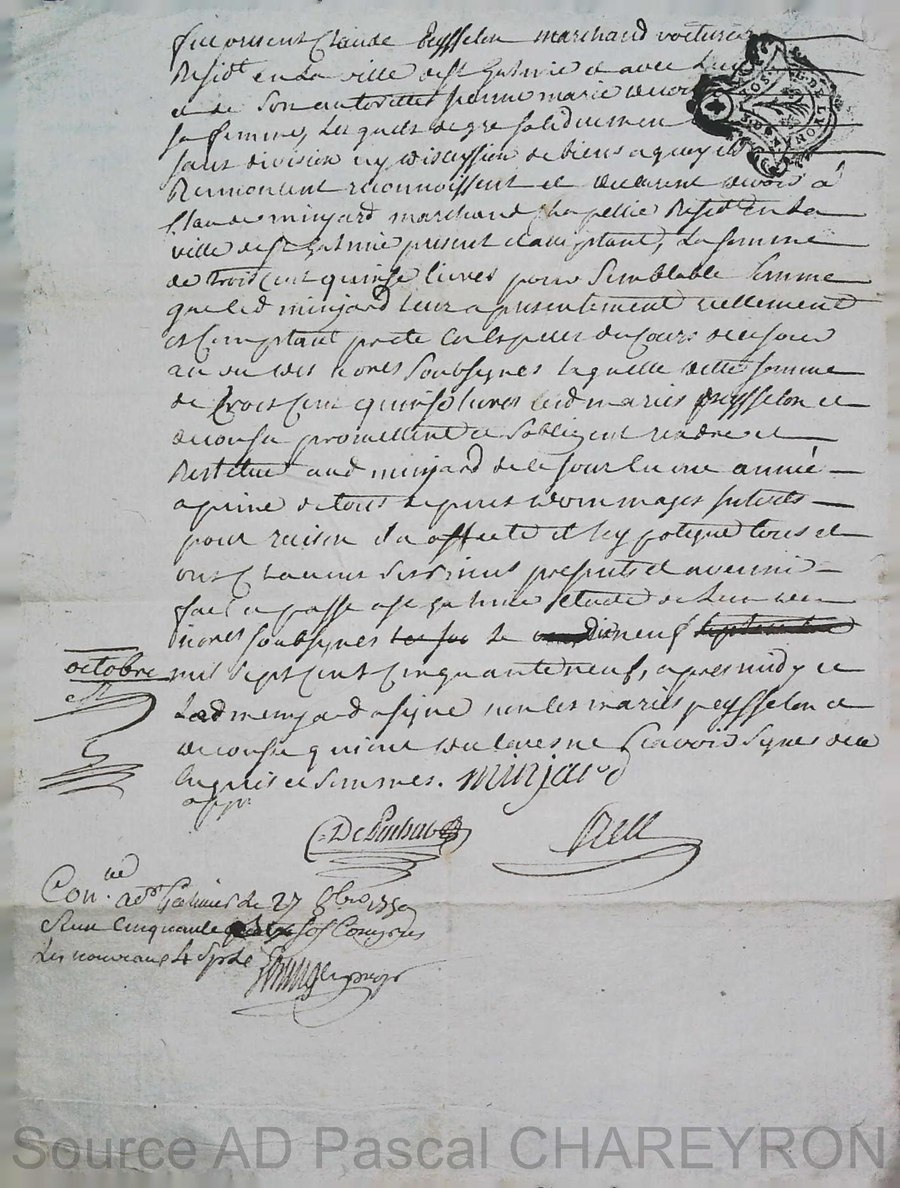 fut present Claude peysselon marchand voiturier
Residt en la ville de st Galmie et avec luy
et de son autorité Jeanne marie decouse
sa femme, lesquels de gre solidairement
sans division ny discussion de biens a quoy ils
Renoncent reconnoissent et declarent devoir à
Claude minjard marchand chapellie Residt en la
ville de st Galmie present et acceptant, La somme
de trois cent quinse livres pour semblable somme
que led minjard leur a presentement reellement
et comptant preté en especes du cours de ce jour
au vu des nores soubsignes laquelle ditte somme
de trois cent quinse livres lesd maries peysselon et
decouse promettent et sobligent rendre et
Restitue aud minjard de ce jour en une année
a peine de tous depens dommages interets
pour raison ils affecte et hypotequé tous et
uns chacuns ses biens presents et avenir
fait et passe a st Galmie etude de lun des
nores soubsignes le dixneuf
octobre
mil sept cent cinquante neuf, apres midy et
Led menjard a signe non les maries peysselon et
decouse qui ont declares ne scavoir signes de ce
enquis et sommes. minjard
appr
Conlle a st Galmier le 27 8bre 1759
Reçu cinquante sols compris
les nouveaux 4 s pr L
G DE LYON
Source AD Pascal CHAREYRON